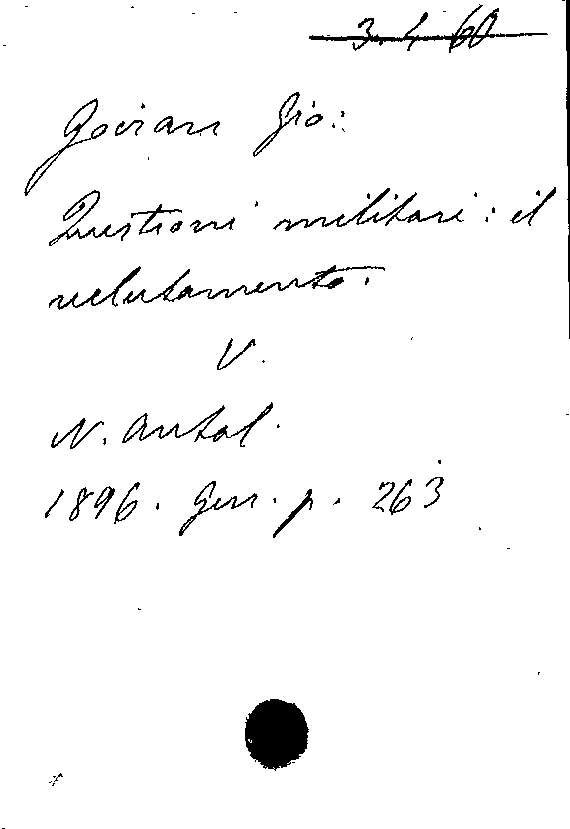 3.4 60
Goiran Gio:
Questioni militari: il
reclutamento.
V.
N. Antol.
1896. Genn. p. 263